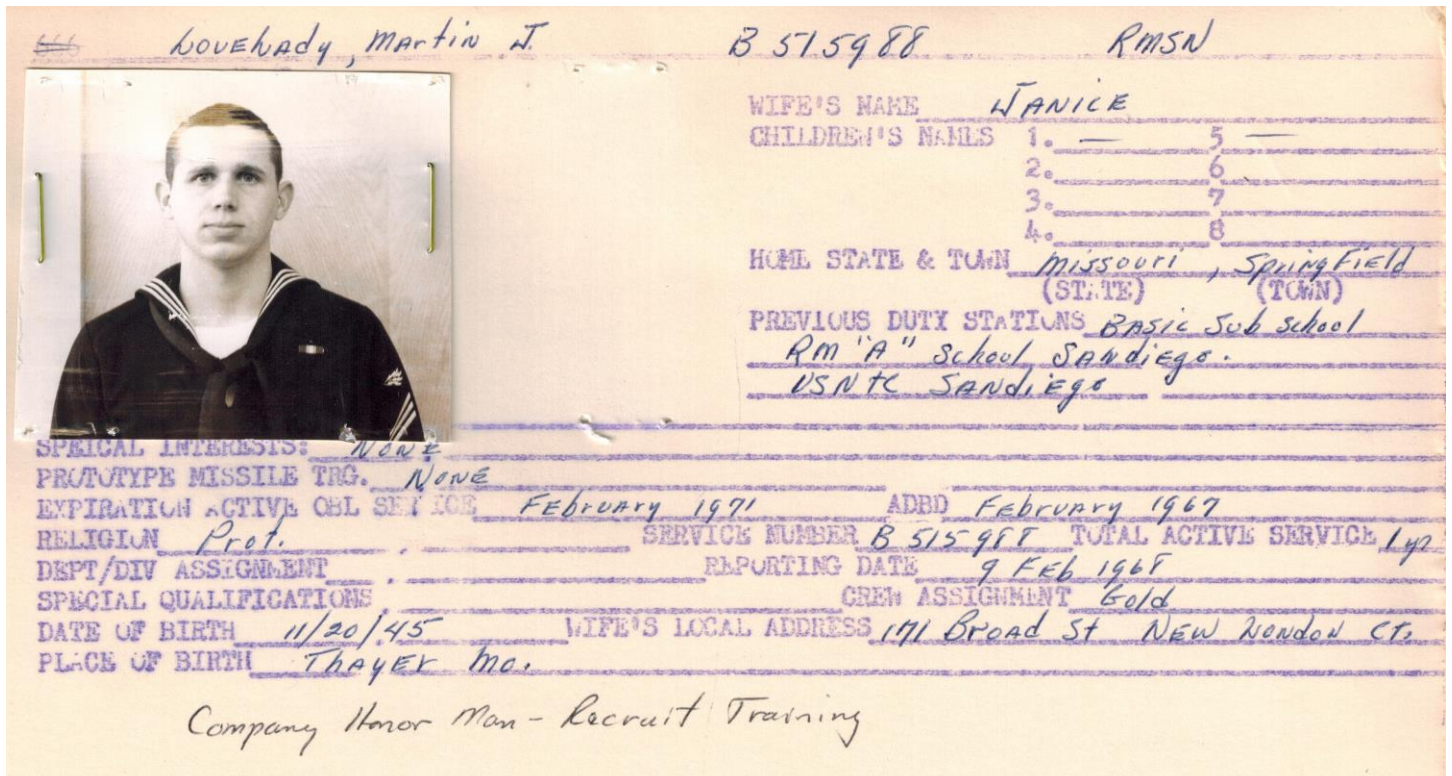 LOVELADY, MARTIN J. B 515988 RMSN
WIFE'S NAME JANICE
CHILDREN'S NAMES 1. — 5 —
2. 6
3. 7
4. 8
HOME STATE & TOWN Missouri, SpringField
(STATE) (TOWN)
PREVIOUS DUTY STATIONS BASIC Sub School
RM "A" School SANdiego.
USNTC SANdiego
SPEICAL INTERESTS: NONE
PROTOTYPE MISSILE TRG. NONE
EXPIRATION ACTIVE OBL SERVICE February 1971 ADBD February 1967
RELIGION Prot. , SERVICE NUMBER B 515988 TOTAL ACTIVE SERVICE 1 yr
DEPT/DIV ASSIGNMENT , REPORTING DATE 9 FEB 1968
SPECIAL QUALIFICATIONS , CREW ASSIGNMENT Gold
DATE OF BIRTH 11/20/45 WIFE'S LOCAL ADDRESS 171 BROAD St NEW LONDON CT.
PLACE OF BIRTH THAYER Mo.
Company Honor Man - Recruit Training